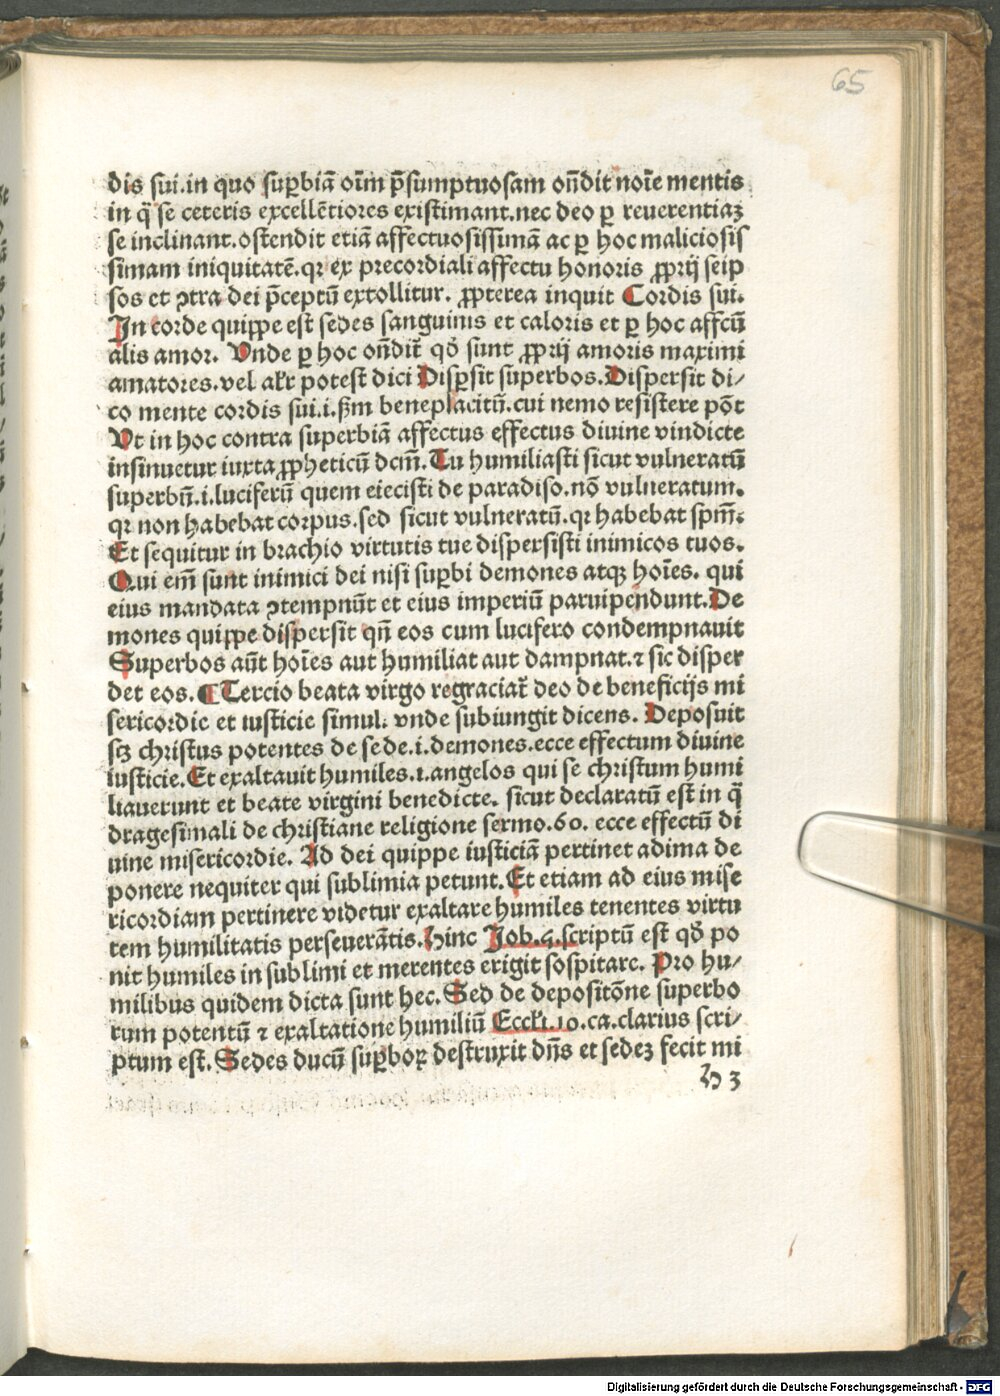 65
dis sui.in quo sup̱biā oīm p̄sumptuosam oñdit noīe mentis
in q̄ se ceteris excellētiores existimant.nec deo p̱ reuerentiaꝫ
se inclinant.ostendit etiā affectuosissimā ac p̱ hoc maliciosis
simam iniquitatē.qꝛ ex precordiali affectu honoris ꝓprij seip
sos et ꝯtra dei p̄ceptū extollitur. ꝓpterea inquit Cordis sui.
In corde quippe est sedes sanguinis et caloris et p̱ hoc affcū
alis amor. Vnde p̱ hoc oñdit̄ qḋ sunt ꝓprij amoris maximi
amatores.vel alr̄ potest dici Disp̱sit superbos.Dispersit di/
co mente cordis sui.i.ẜm beneplacitū.cui nemo resistere pōt
Vt in hoc contra superbiā affectus effectus diuine vindicte
insinuetur iuxta ꝓpheticū dcm̄.Tu humiliasti sicut vulneratū
superbū.i.luciferū quem eiecisti de paradiso.nō vulneratum.
qꝛ non habebat corpus.sed sicut vulneratū.qꝛ habebat spm̄.
Et sequitur in brachio virtutis tue dispersisti inimicos tuos.
Qui em̄ sunt inimici dei nisi sup̱bi demones atqꝫ hoīes. qui
eius mandata ꝯtempnūt et eius imperiū paruipendunt.De
mones quippe dispersit qn̄ eos cum lucifero condempnauit
Superbos aūt hoīes aut humiliat aut dampnat.⁊ sic disper
det eos. ¶ Tercio beata virgo regraciat̄ deo de beneficijs mi
sericordie et iusticie simul. vnde subiungit dicens. Deposuit
scꝫ christus potentes de sede.i.demones.ecce effectum diuine
iusticie.Et exaltauit humiles.i.angelos qui se christum humi
liauerunt et beate virgini benedicte. sicut declaratū est in q̄
dragesimali de christiane religione sermo.60. ecce effectū di
uine misericordie. Ad dei quippe iusticiā pertinet adima de
ponere nequiter qui sublimia petunt.Et etiam ad eius mise
ricordiam pertinere videtur exaltare humiles tenentes virtu
tem humilitatis perseuerātis.Hinc Job.5.scriptū est qḋ po
nit humiles in sublimi et merentes erigit sospitate. Pro hu/
milibus quidem dicta sunt hec.Sed de depositōne superbo
rum potentū ⁊ exaltatione humiliū Eccłi.10.ca.clarius scri/
ptum est.Sedes ducū sup̱boꝝ destruxit dn̄s et sedeꝫ fecit mi
H 3
Digitalisierung gefördert durch die Deutsche Forschungsgemeinschaft - DFG